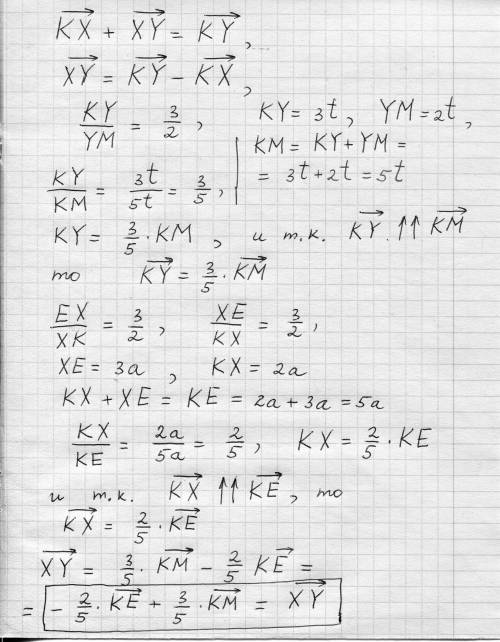 $\overrightarrow{KX} + \overrightarrow{XY} = \overrightarrow{KY}$,
$\overrightarrow{XY} = \overrightarrow{KY} - \overrightarrow{KX}$,
$\frac{KY}{YM} = \frac{3}{2}$, $KY = 3t$, $YM = 2t$,
$KM = KY + YM =$
$= 3t + 2t = 5t$
$\frac{KY}{KM} = \frac{3t}{5t} = \frac{3}{5}$,
$KY = \frac{3}{5} \cdot KM$, и т.к. $\overrightarrow{KY} \uparrow\uparrow \overrightarrow{KM}$
то $\overrightarrow{KY} = \frac{3}{5} \cdot \overrightarrow{KM}$
$\frac{EX}{XK} = \frac{3}{2}$, $\frac{XE}{KX} = \frac{3}{2}$,
$XE = 3a$, $KX = 2a$
$KX + XE = KE = 2a + 3a = 5a$
$\frac{KX}{KE} = \frac{2a}{5a} = \frac{2}{5}$, $KX = \frac{2}{5} \cdot KE$
и т.к. $\overrightarrow{KX} \uparrow\uparrow \overrightarrow{KE}$, то
$\overrightarrow{KX} = \frac{2}{5} \cdot \overrightarrow{KE}$
$\overrightarrow{XY} = \frac{3}{5} \cdot \overrightarrow{KM} - \frac{2}{5} \overrightarrow{KE} =$
$= -\frac{2}{5} \cdot \overrightarrow{KE} + \frac{3}{5} \cdot \overrightarrow{KM} = \overrightarrow{XY}$